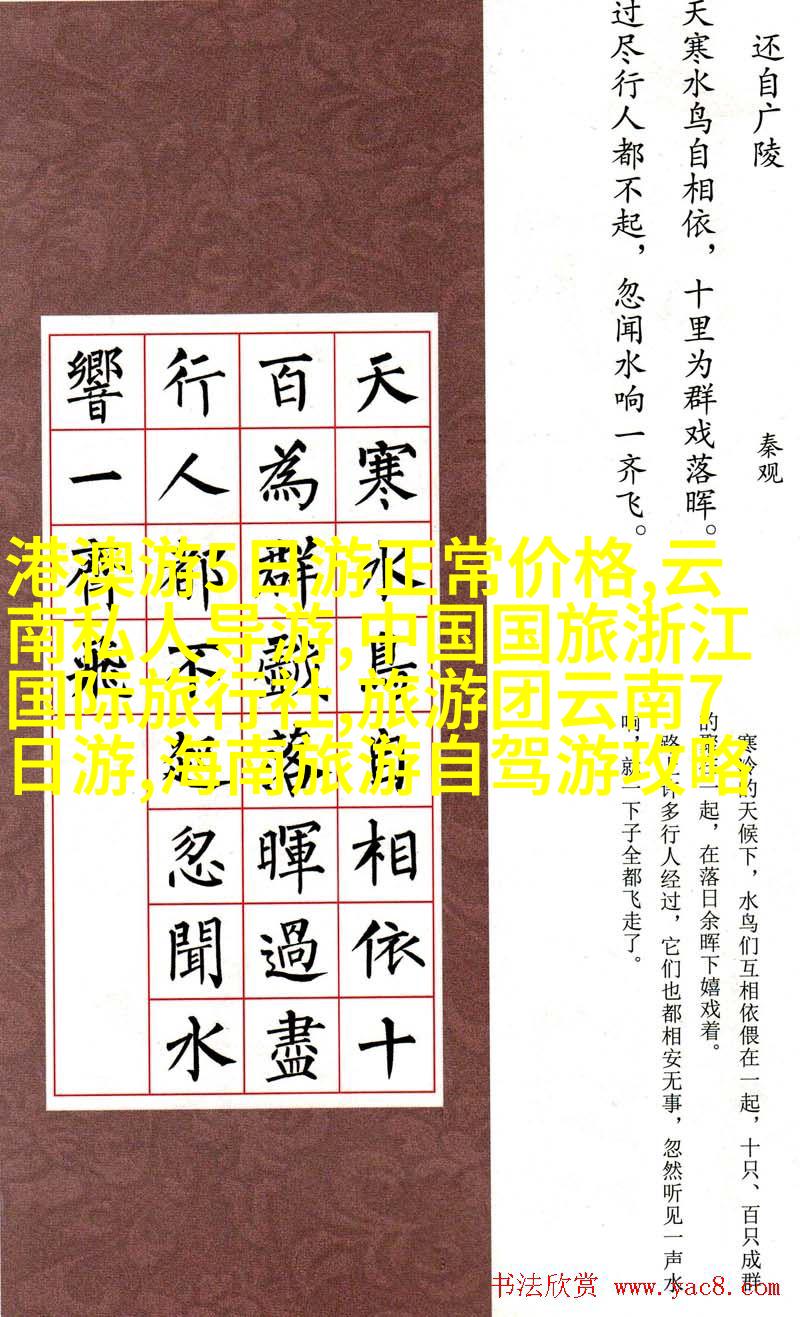 还自广陵
秦观
天寒水鸟自相依，十里为群戏落晖。
过尽行人都不起，忽闻水响一齐飞。
寒冷的天候下，水鸟们互相依偎在一起，十只、百只成群
的聚在一起，在落日余晖下嬉戏着。
路上许多行人经过，它们也都相安无事，忽然听见一声水
响，就一下子全都飞走了。
天寒水鳥自相依十
百為群戲落暉過盡
行人都不起忽聞水
響一齊飛
港澳游5日游正常价格,云
南私人导游,中国国旅浙江
国际旅行社,旅游团云南7
日游,海南旅游自驾游攻略
书法欣赏 www.yac8.com